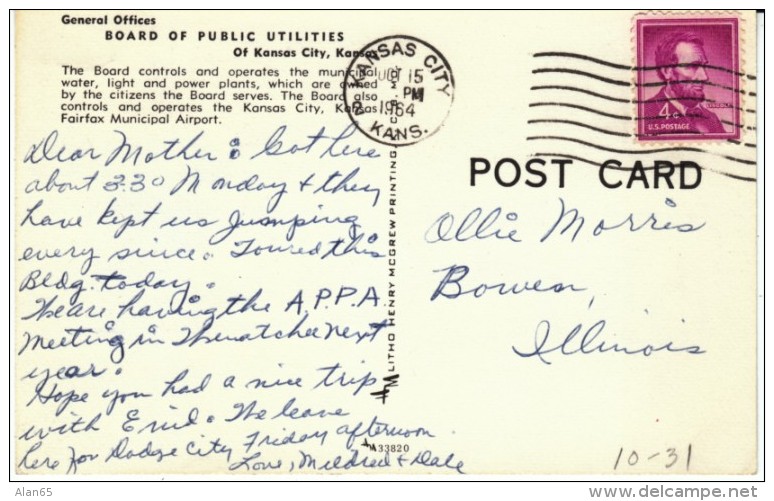 General Offices
BOARD OF PUBLIC UTILITIES
Of Kansas City, Kansas
The Board controls and operates the municipal
water, light and power plants, which are owned
by the citizens the Board serves. The Board also
controls and operates the Kansas City, Kansas
Fairfax Municipal Airport.
KANSAS CITY
15
PM
1964
KANS.
4¢
U.S. POSTAGE
POST CARD
Dear Mother: Got here
about 3:30 Monday & they
have kept us jumping
every since. Toured this
Bldg. today.
We are having the A.P.P.A
Meeting in Wenatchee next
year.
Hope you had a nice trip
with Enid. We leave
here for Dodge City Friday afternoon
Love, Mildred & Dale
LITHO HENRY MCGREW PRINTING,
M33820
Ollie Morris
Bowen,
Illinois
10-31
Alan65
delcampe.net